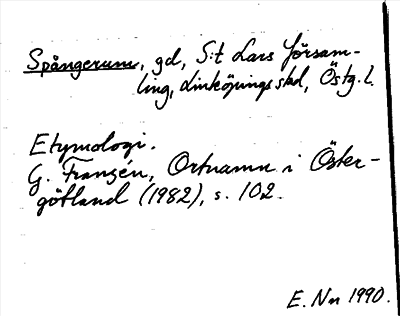 Spångerum, gd, S:t Lars försam-
ling, Linköpings stad, Östg. l.
Etymologi.
G. Franzén, Ortnamn i Öster-
götland (1982), s. 102.
E. Nn 1990.